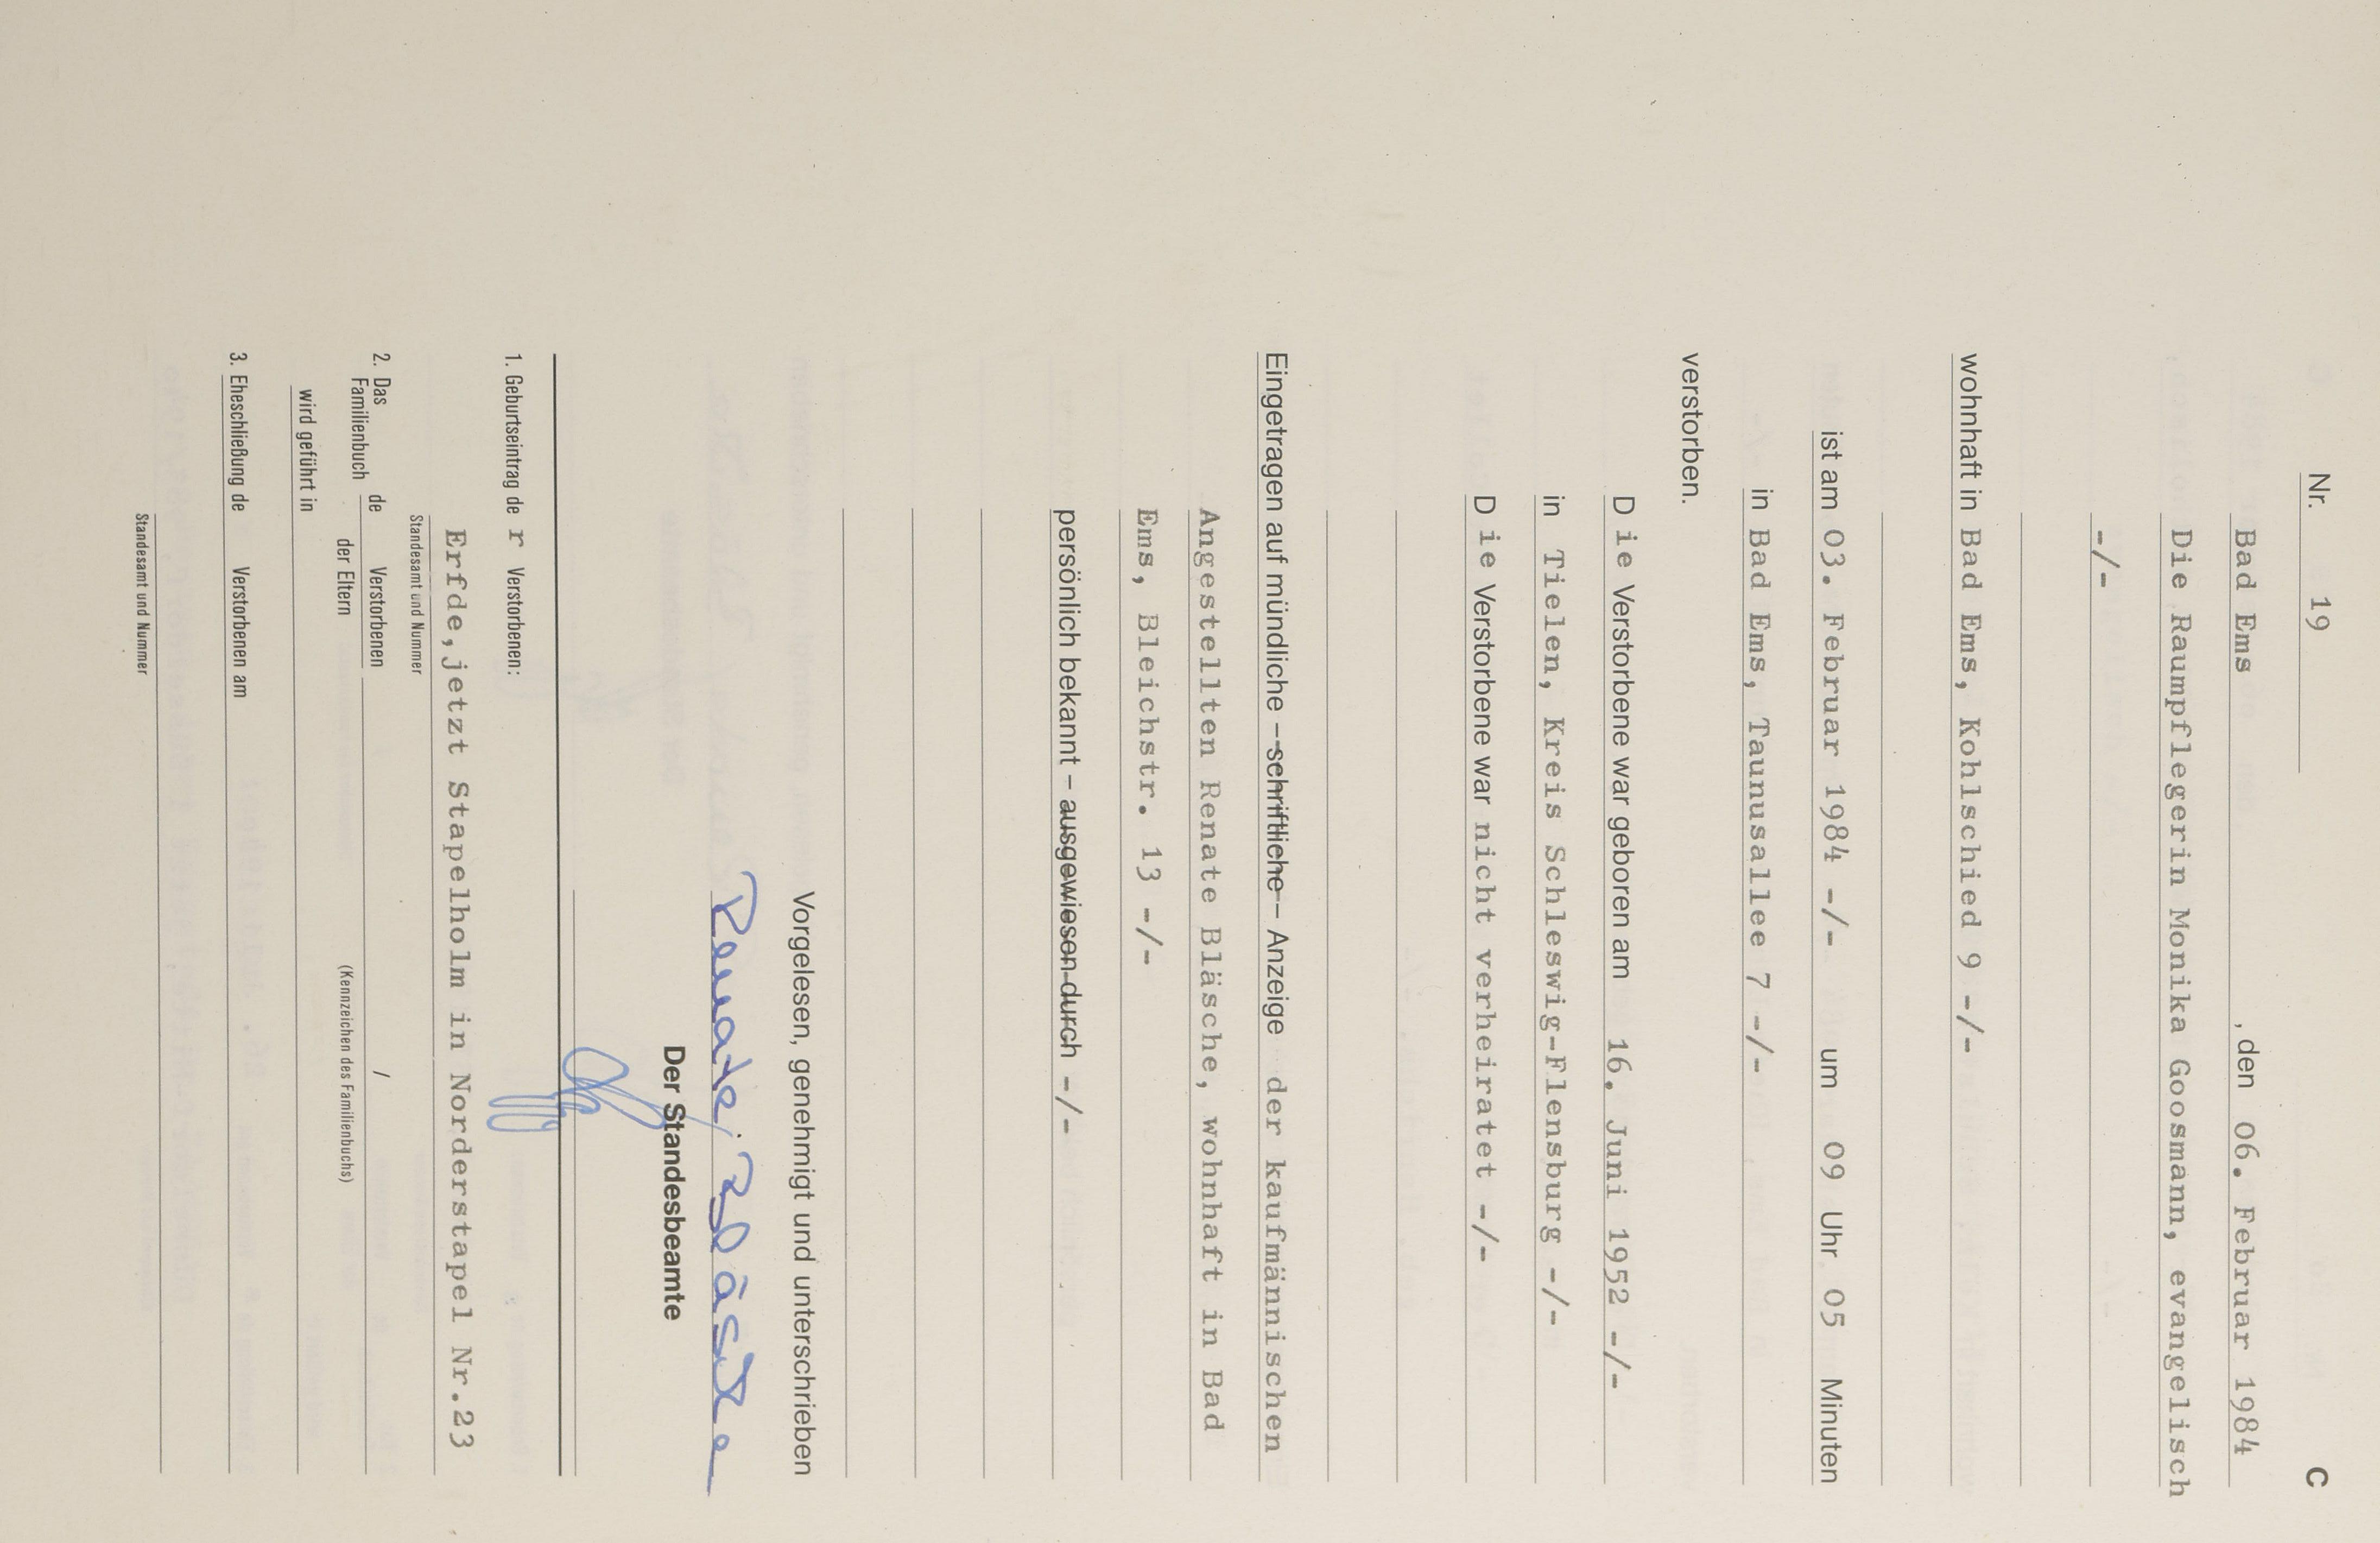 Nr. 19 C
Bad Ems , den 06. Februar 1984
Die Raumpflegerin Monika Goosmann, evangelisch
-/-
wohnhaft in Bad Ems, Kohlschied 9 -/-
ist am 03. Februar 1984 -/- um 09 Uhr 05 Minuten
in Bad Ems, Taunusallee 7 -/-
verstorben.
Die Verstorbene war geboren am 16. Juni 1952 -/-
in Tielen, Kreis Schleswig-Flensburg -/-
Die Verstorbene war nicht verheiratet -/-
Eingetragen auf mündliche – schriftliche – Anzeige der kaufmännischen
Angestellten Renate Bläsche, wohnhaft in Bad
Ems, Bleichstr. 13 -/-
persönlich bekannt – ausgewiesen durch -/-
Vorgelesen, genehmigt und unterschrieben
Renate Bläsche
Der Standesbeamte
1. Geburtseintrag de r Verstorbenen:
Erfde,jetzt Stapelholm in Norderstapel Nr.23
Standesamt und Nummer
2. Das Familienbuch de Verstorbenen /
der Eltern (Kennzeichen des Familienbuchs)
wird geführt in
3. Eheschließung de Verstorbenen am
Standesamt und Nummer